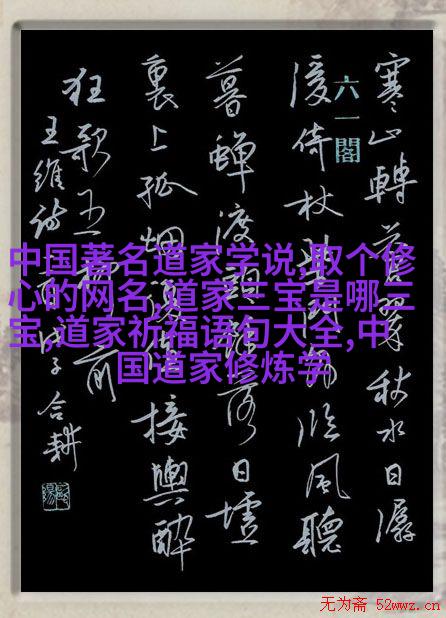 寒山轉蒼翠秋水日潺
六一閣
湲倚杖柴門外臨風聽
暮蟬渡頭餘落日墟
裏上孤烟復值接輿醉
狂歌五柳前
王維詩 甲子 合耕
中国著名道家学说,取个修
心的网名,道家三宝是哪三
宝,道家祈福语句大全,中
国道家修炼学
无为斋 52wwz.cn